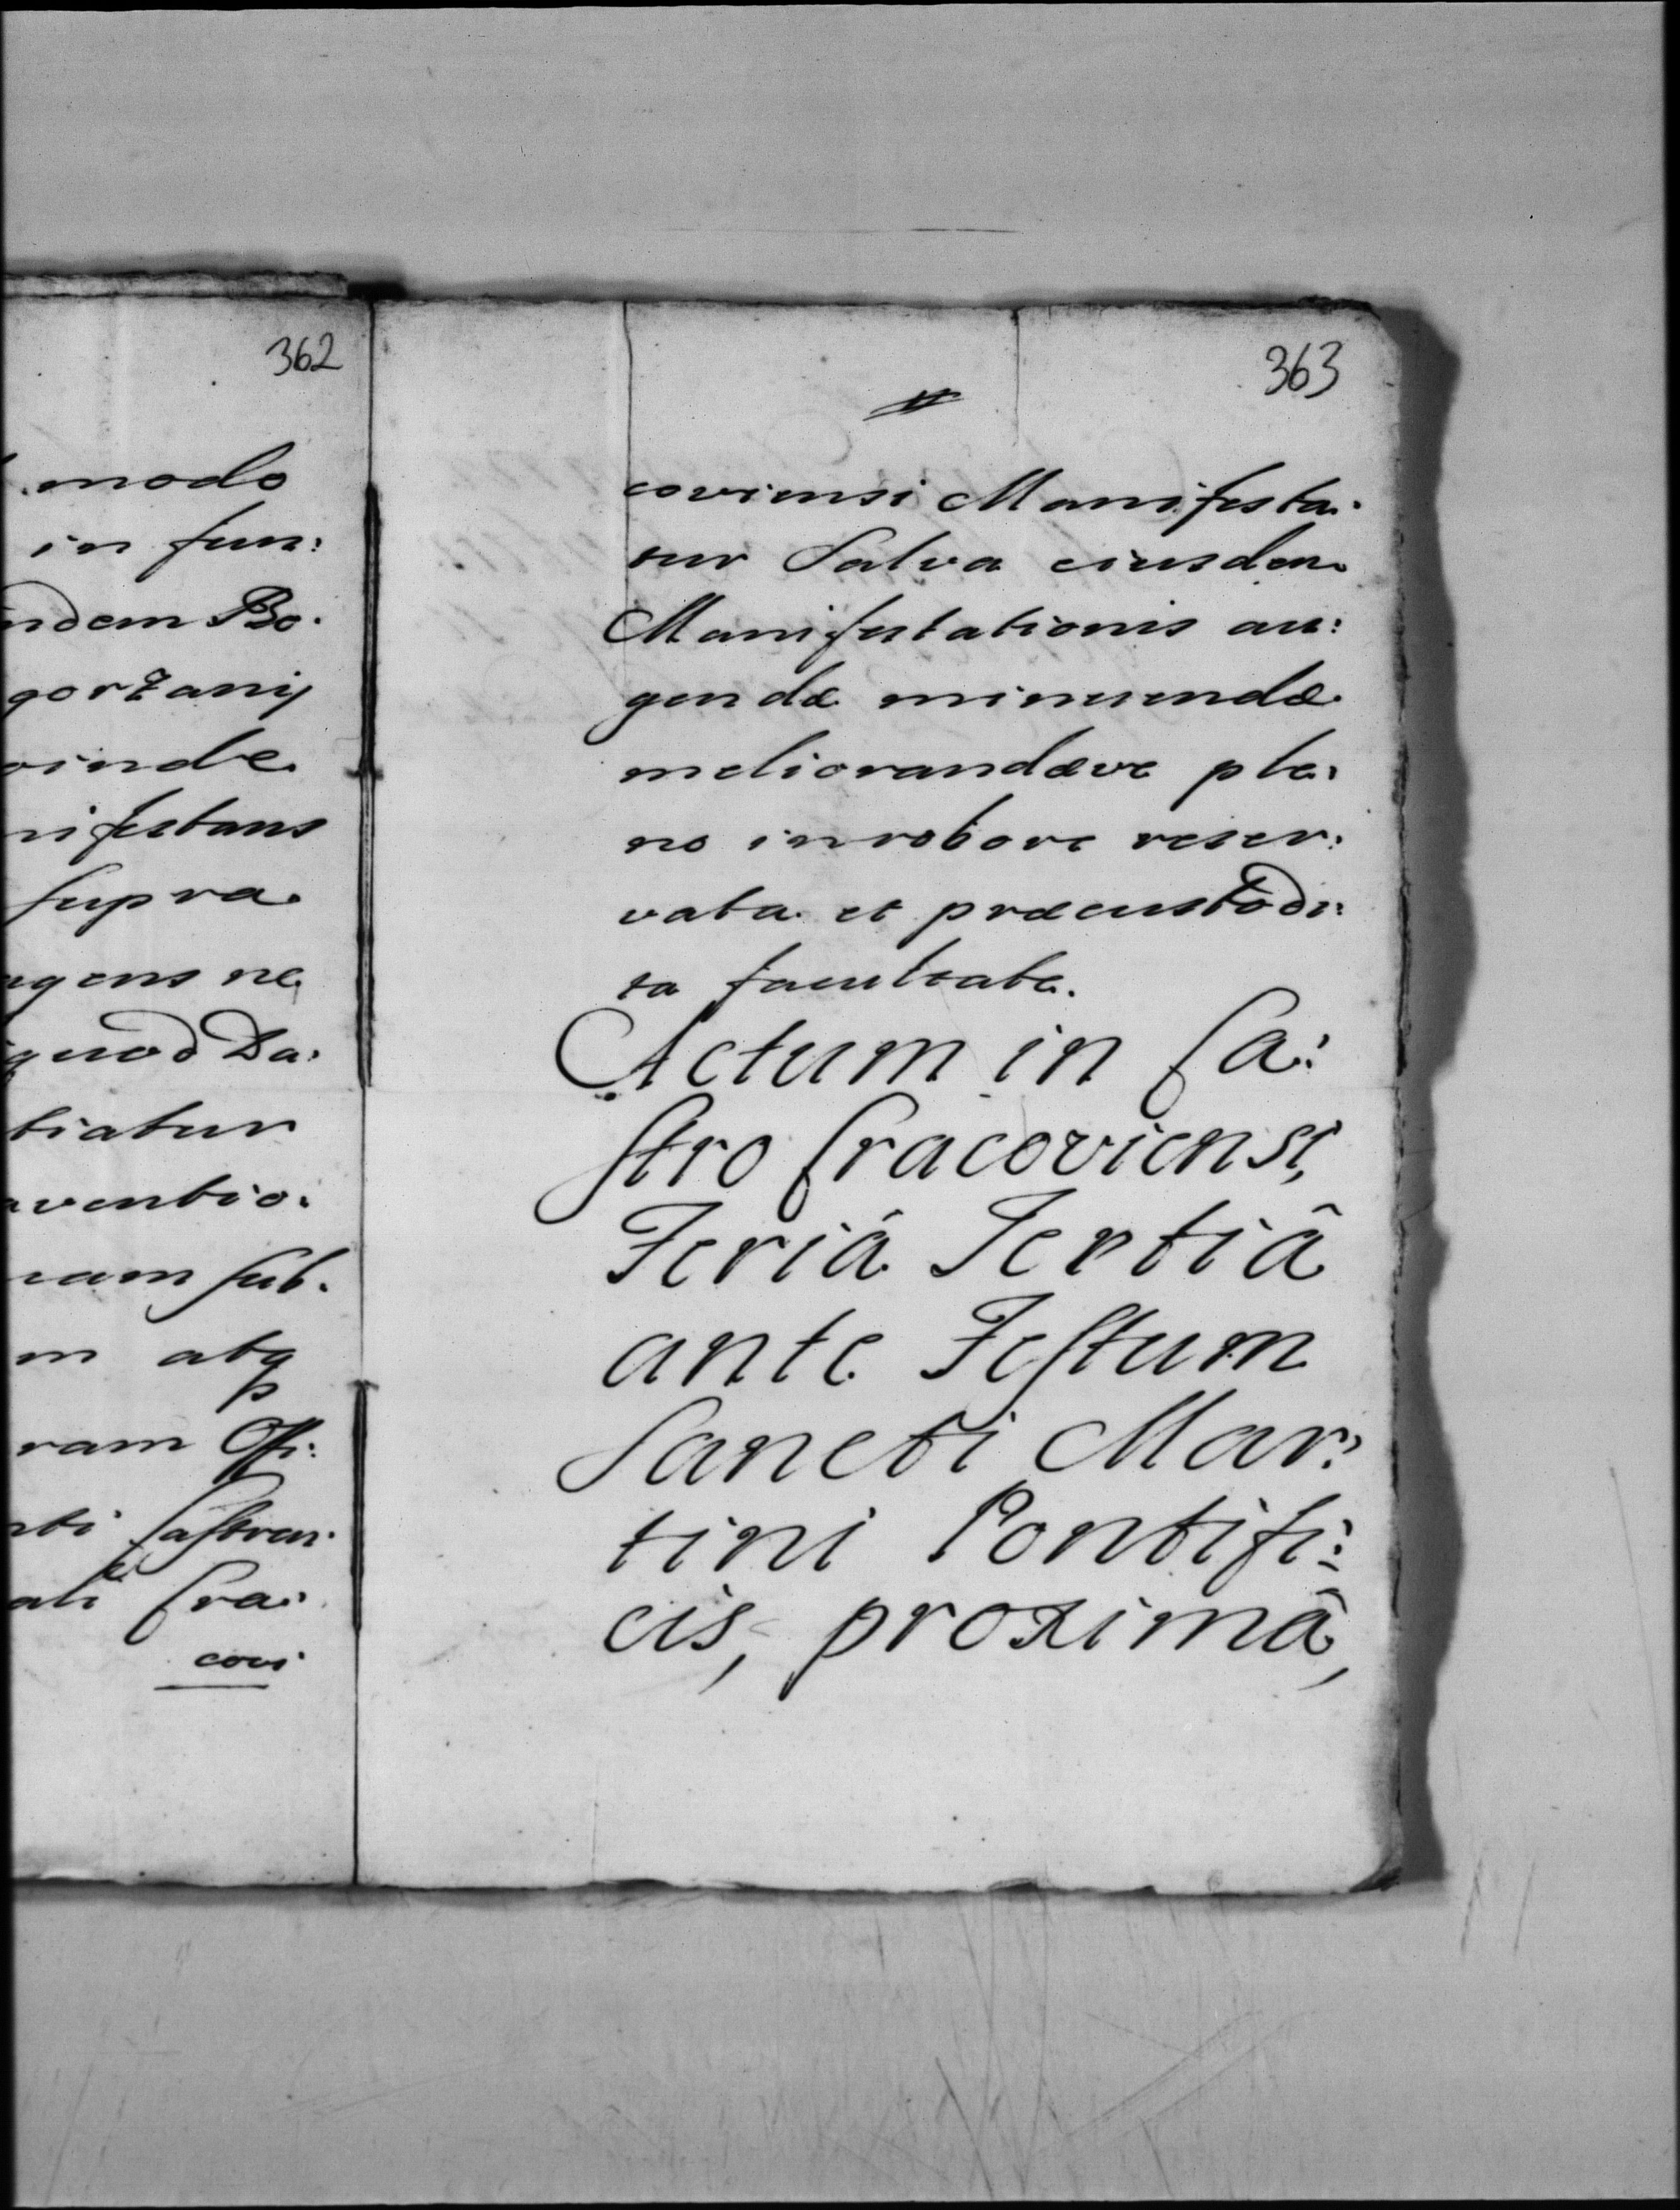 362
modo
in fun:
ndem Bo.
gorzanÿ
oinde
nifestans
supra
agens ne
quod Da:
tiatur
aventio:
ram sub.
m atq
ram Offi:
nti Castren:
ali Cra:
covi
363
coviensi Manifesta:
tur Salva eiusdem
Manifestationis au:
gendæ minuendæ
meliorandæve ple:
no in robore reser:
vata et præcustodi:
ta facultate.
Actum in Ca:
stro Cracoviensi,
Feriâ Tertiâ
ante Festum
Sancti Mar:
tini Pontifi:
cis, proximâ,